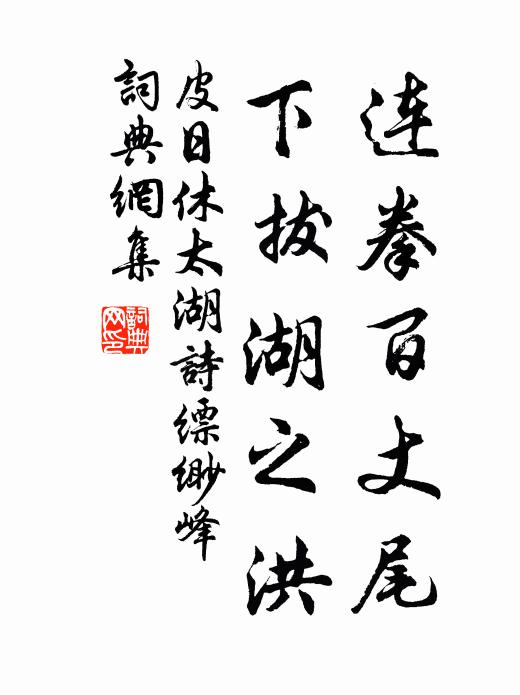 连拳百丈尾
下拔湖之洪
皮日休太湖詩縹緲峰
詞典網集
詞典
网印